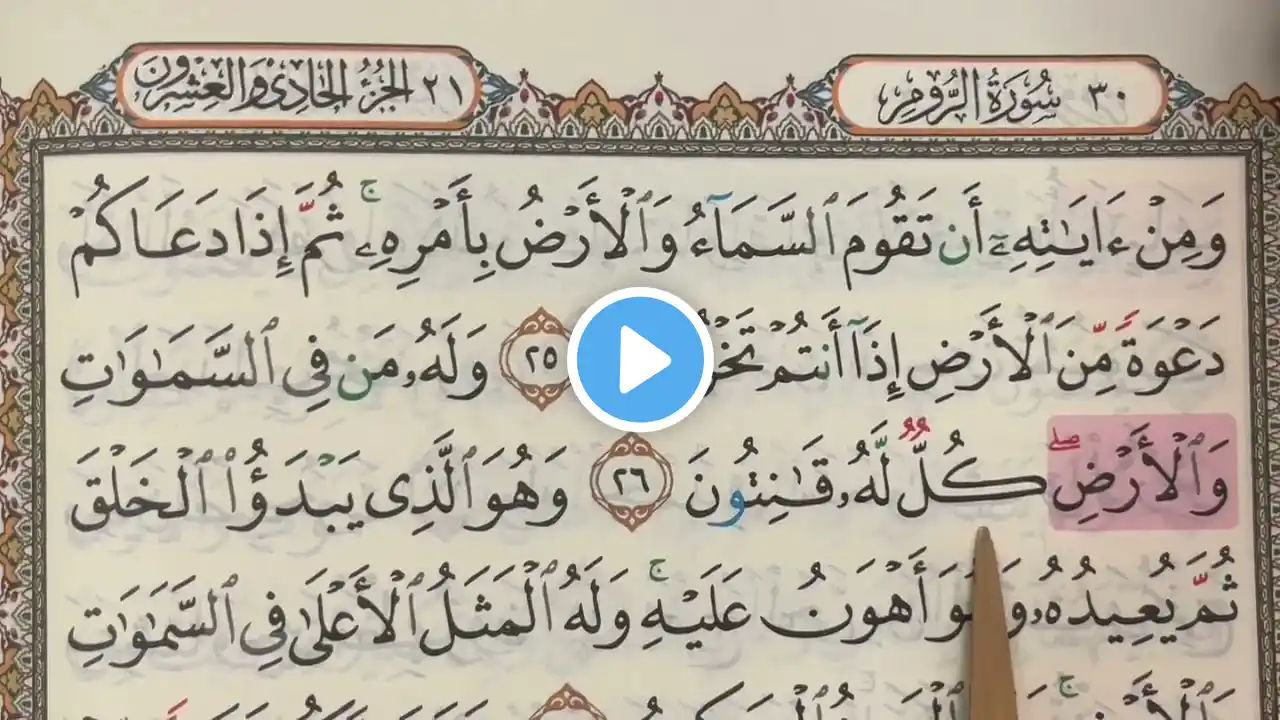 ٣٠ سُورَةُ الرُّومِ
٢١ الجُزْءُ الحَادِيْ وَالعِشْرُونَ
وَمِنْ ءَايَـٰتِهِۦٓ أَن تَقُومَ ٱلسَّمَآءُ وَٱلْأَرْضُ بِأَمْرِهِۦ ۚ ثُمَّ إِذَا دَعَاكُمْ
دَعْوَةً مِّنَ ٱلْأَرْضِ إِذَآ أَنتُمْ ٢٥ وَلَهُۥ مَن فِى ٱلسَّمَـٰوَٰتِ
وَٱلْأَرْضِ ۖ كُلٌّ لَّهُۥ قَـٰنِتُونَ ٢٦ وَهُوَ ٱلَّذِى يَبْدَؤُا۟ ٱلْخَلْقَ
ثُمَّ يُعِيدُهُۥ وَهُوَ أَهْوَنُ عَلَيْهِ ۚ وَلَهُ ٱلْمَثَلُ ٱلْأَعْلَىٰ فِى ٱلسَّمَـٰوَٰتِ